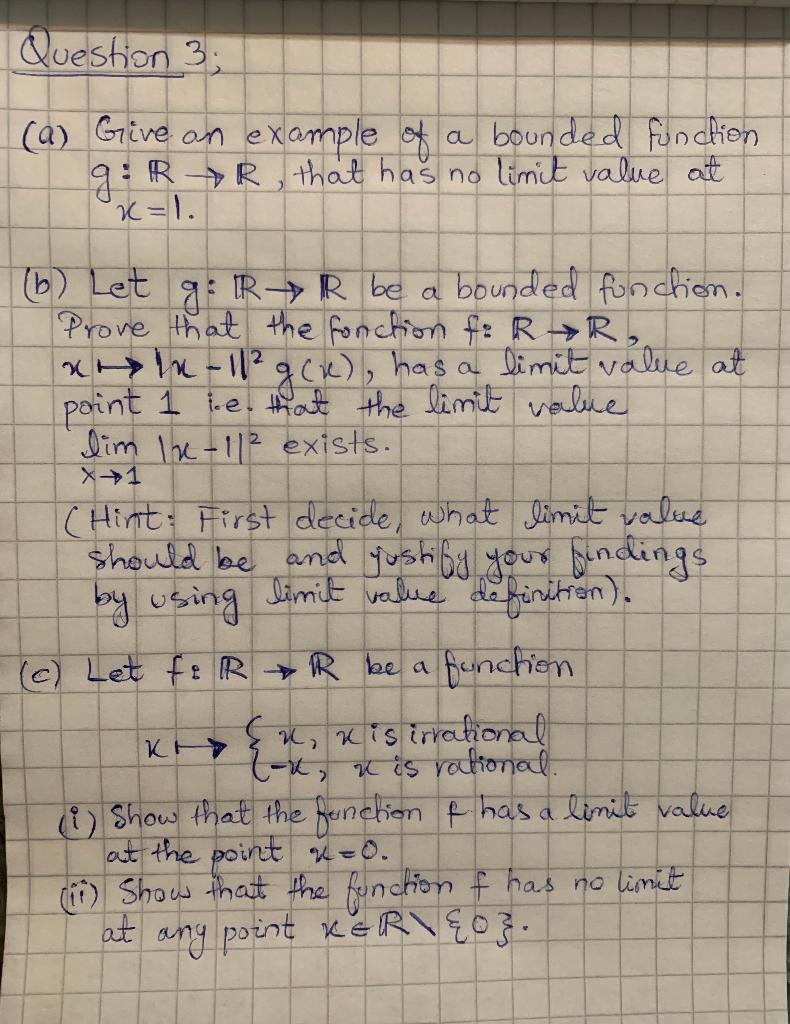 Question 3;
(a) Give an example of a bounded function
g: ℝ → ℝ, that has no limit value at
x=1.
(b) Let g: ℝ → ℝ be a bounded function.
Prove that the function f: ℝ → ℝ,
x ↦ |x-1|² g(x), has a limit value at
point 1 i.e. that the limit value
lim |x-1|² exists.
x→1
(Hint: First decide, what limit value
should be and justify your findings
by using limit value definition).
(c) Let f: ℝ → ℝ be a function
x ↦ { x, x is irrational
-x, x is rational.
(i) Show that the function f has a limit value
at the point x=0.
(ii) Show that the function f has no limit
at any point x∈ℝ\{0}.